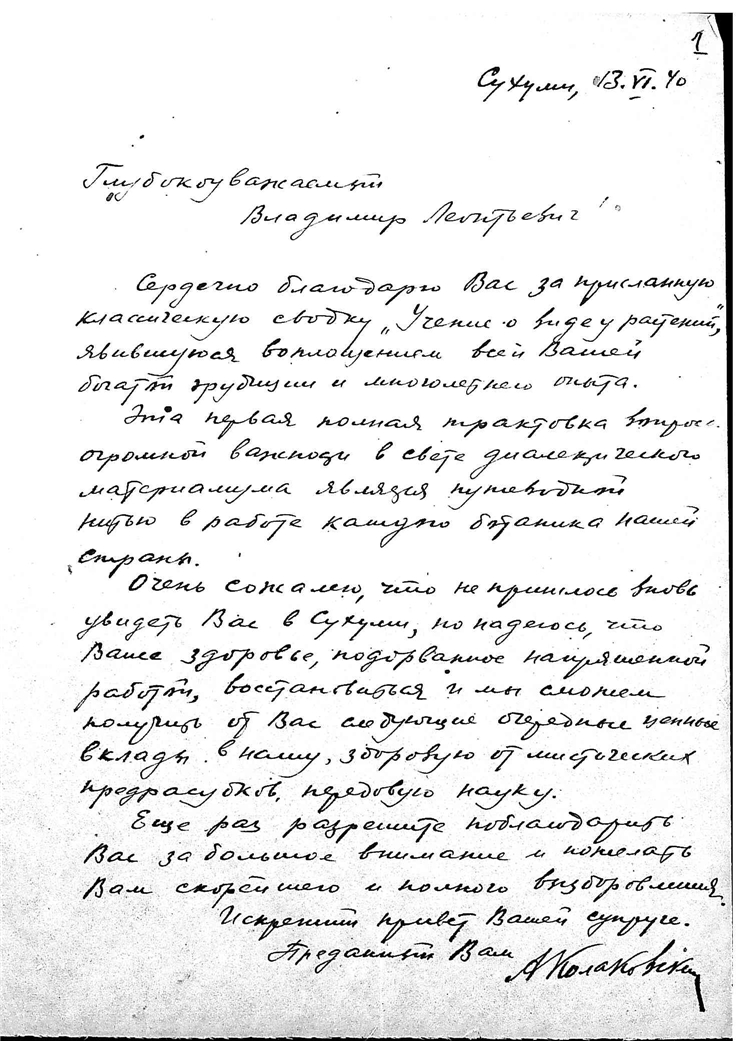 1
Сухуми, 13.VI.40
Глубокоуважаемый
Владимир Леонтьевич!
Сердечно благодарю Вас за присланную
классическую сводку „Учение о виде у растений",
явившуюся воплощением всей Вашей
богатой эрудиции и многолетнего опыта.
Эта первая полная трактовка
огромной важности в свете диалектического
материализма явится путеводной
нитью в работе каждого ботаника нашей
страны.
Очень сожалею, что не пришлось вновь
увидеть Вас в Сухуми, но надеюсь, что
Ваше здоровье, подорванное напряженной
работой, восстановиться и мы сможем
получить от Вас следующие очередные ценные
вклады в нашу, здоровую от мистических
предрассудков, передовую науку.
Еще раз разрешите поблагодарить
Вас за большое внимание и пожелать
Вам скорейшего и полного выздоровления.
Искренний привет Вашей супруге.
Преданный Вам
А Колаковский